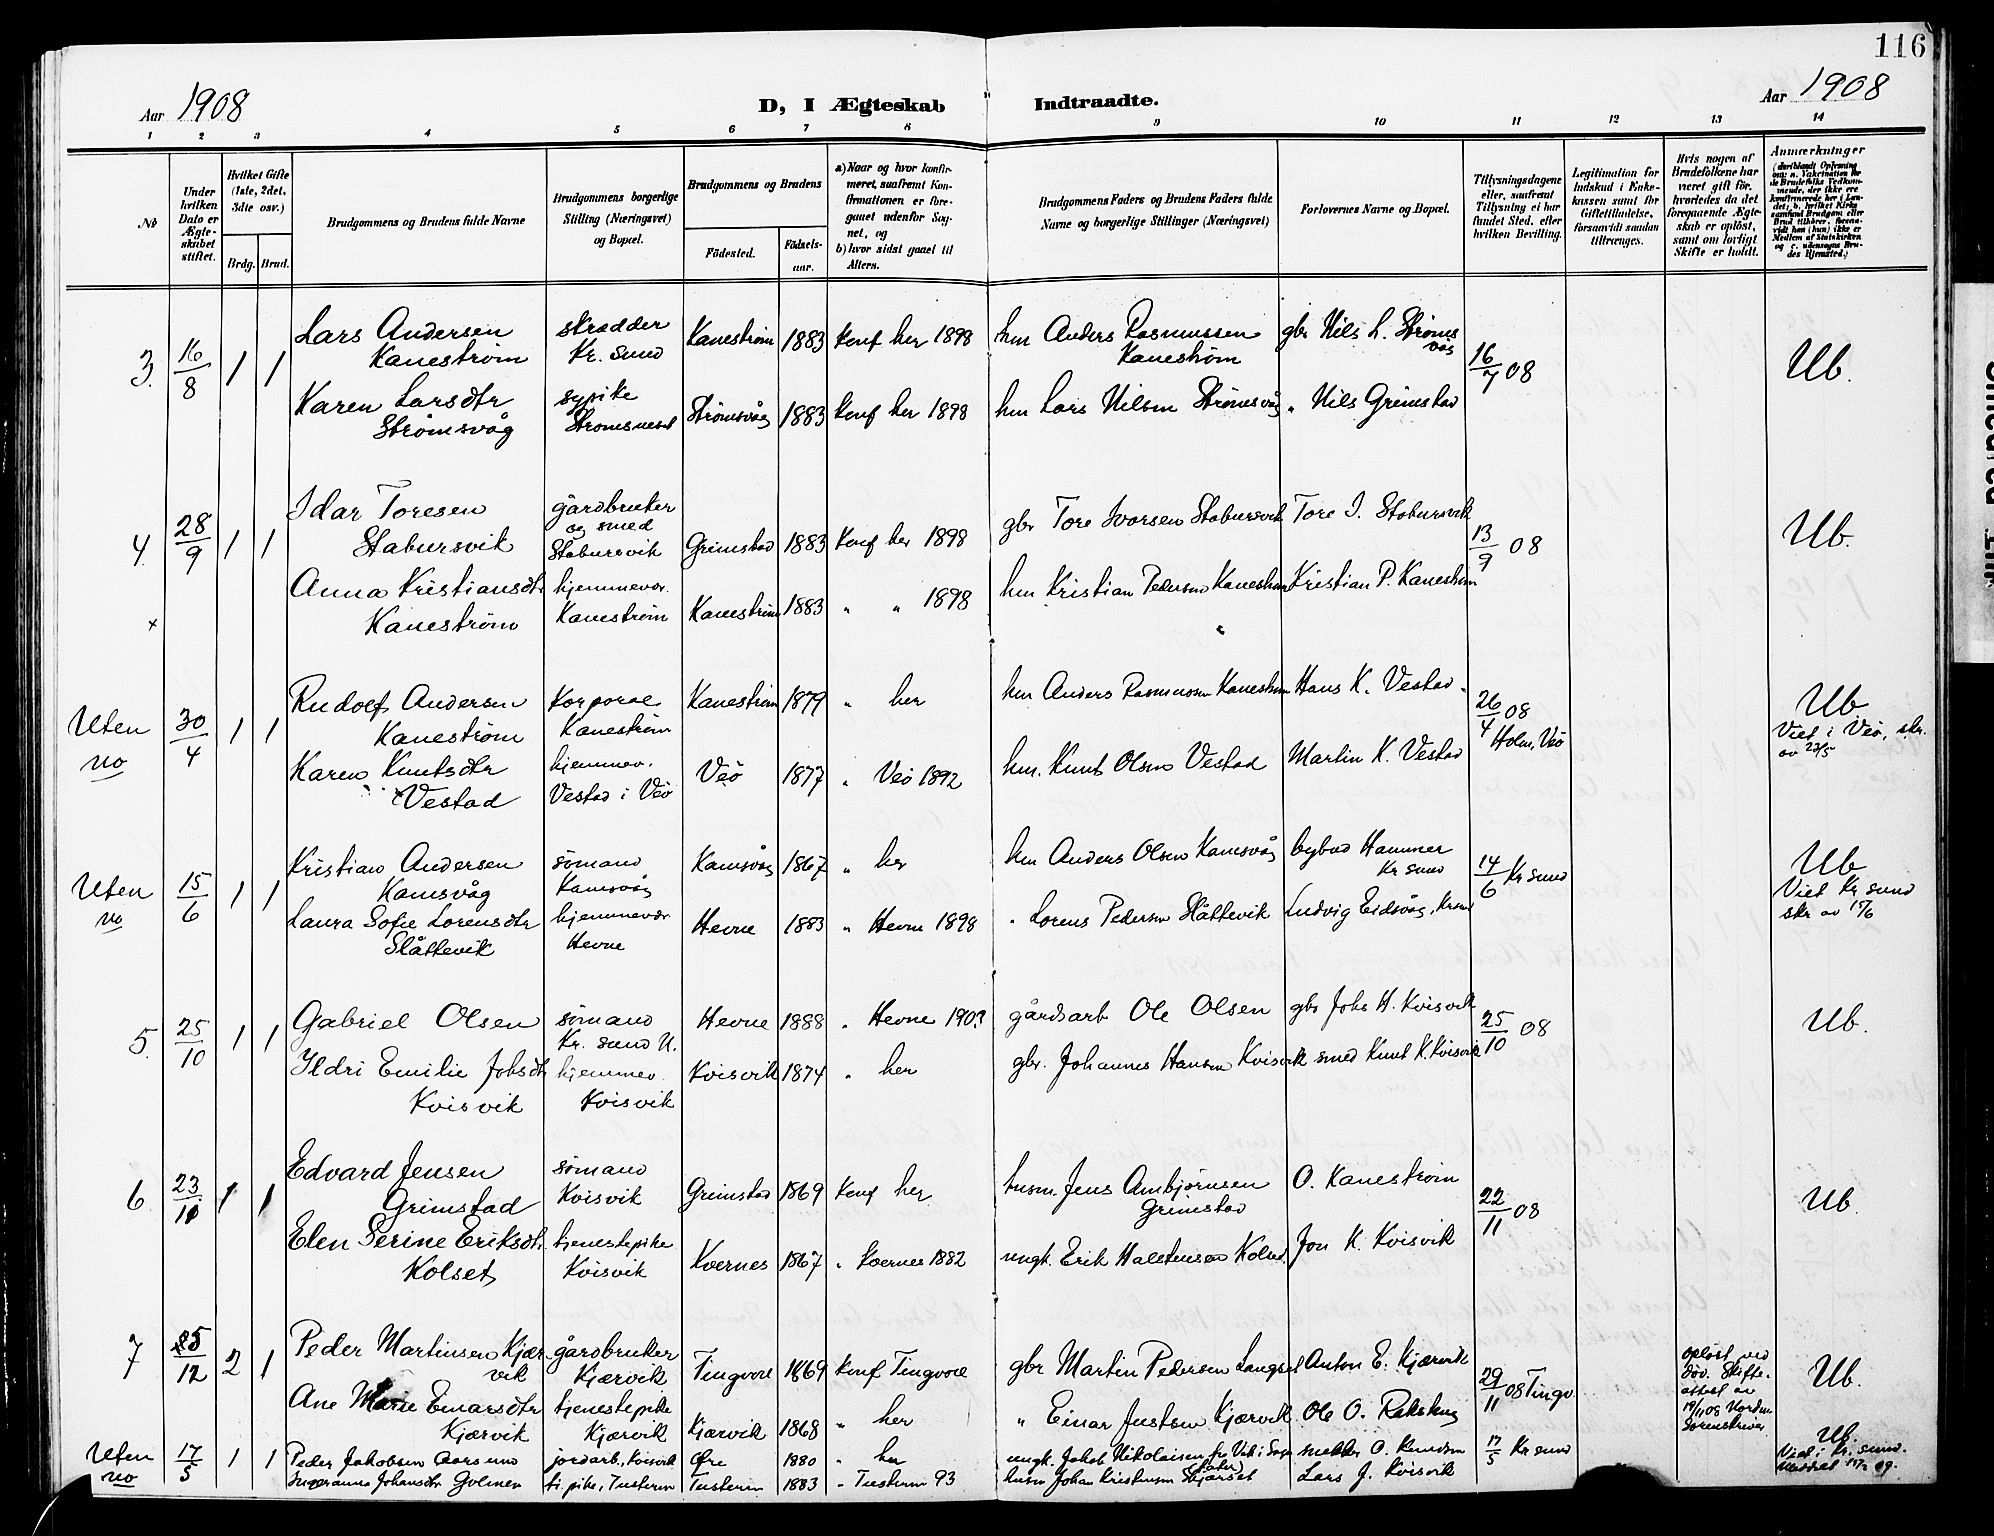 116
Aar 1908
D, I Ægteskab Indtraadte.
Aar 1908
1 2 3 4 5 6 7 8 9 10 11 12 13 14
№
Under hvilken Dato er Ægteskabet stiftet.
Hvilket Gifte (1ste, 2det, 3die osv.)
Brdg. Brud.
Brudgommens og Brudens fulde Navne
Brudgommens borgerlige Stilling (Næringsvei) og Bopæl.
Brudgommens og Brudens
Födested. Födselsaar.
a) Naar og hvor konfirmeret, saafremt Konfirmationen er foregaaet udenfor Sognet, og
b) hvor sidst gaaet til Alters.
Brudgommens Faders og Brudens Faders fulde Navne og borgerlige Stillinger (Næringsvei)
Forlovernes Navne og Bopæl.
Tillysningsdagene eller, saafremt Tillysning ei har fundet Sted, efter hvilken Bevilling.
Legitimation for Indskud i Enkekassen samt for Giftetilladelse, forsaavidt saadan tiltrænges.
Hvis nogen af Brudefolkene har været gift för, hvorledes da det foregaaende Ægteskab er oplöst, samt om lovligt Skifte er holdt.
Anmærkninger
3. 16/8 1 1 Lars Andersen Kanestrøm skrædder Kr. sund Kanestrøm 1883 Konf her 1898 hm Anders Rasmussen Kanestrøm gbr Nils L. Strømsvåg 16/7 08 Ub.
Karen Larsdtr Strømsvåg sypike Strømsnest Strømsvåg 1883 Konf her 1898 hm Lars Nilsen Strømsvåg „ Nils Grimstad
4. 28/9 1 1 Idar Toresen Stabursvik gårdbruker og smed Stabursvik Grimstad 1883 Konf her 1898 gbr Tore Ivarsen Stabursvik Tore I. Stabursvik 13/9 08 Ub.
x Anna Kristiansdtr Kanestrøm hjemmevær. Kanestrøm Kanestrøm 1883 „ „ 1898 hm Kristian Pedersen Kanestrøm Kristian P. Kanestrøm
Uten no 30/4 1 1 Rudolf Andersen Kanestrøm Korporal Kanestrøm Kanestrøm 1879 „ her hm Anders Rasmussen Kanestrøm Hans K. Vestad 26/4 08 Holm, Veö Ub Viet i Veø, skr. av 23/5
Karen Knutsdtr Vestad hjemmev. Vestad i Veö Veö 1877 „ Veö 1892 hm. Knut Olsen Vestad Martin K. Vestad
Uten no 15/6 1 1 Kristian Andersen Kamsvåg sömand Kamsvåg Kamsvåg 1867 „ her hm Anders Olsen Kamsvåg bybud Hammer Kr sund 14/6 Kr sund Ub Viet Kr sund skr av 15/6
Laura Sofie Lorensdtr Slåttevik hjemmevær Hevne Hevne 1883 „ Hevne 1898 „ Lorens Pedersen Slåttevik Ludvig Eidsvåg, Krsund
5. 25/10 1 1 Gabriel Olsen sömand Kr. sund N. Hevne 1888 „ Hevne 1903 gårdsarb Ole Olsen gbr Johs H. Kvisvik 25/10 08 Ub.
Ildri Emilie Johsdtr Kvisvik hjemmev. Kvisvik Kvisvik 1874 „ her gbr. Johannes Hansen Kvisvik smed Knut K. Kvisvik
6 23/11 1 1 Edvard Jensen Grimstad sömand Kvisvik Grimstad 1869 Konf her husm. Jens Ambjörnsen Grimstad O. Kanestrøm 22/11 08 Ub.
Elen Serine Eriksdtr Kolset tjenestepike Kvisvik Kvernes 1867 „ Kvernes 1882 ungk. Erik Halstensen Kolset Jon K. Kvisvik
7 25/12 2 1 Peder Martinsen Kjærvik gårdbruker Kjærvik Tingvoll 1869 Konf Tingvoll gbr Martin Pedersen Langset Anton E. Kjærvik 29/11 08 Tingv. opløst ved död. Skifteattest av 19/11 08 Nordm. Sorenskriver Ub.
Ane Marie Einarsdtr Kjærvik tjenestepike Kjærvik Kjærvik 1868 „ her „ Einar Justsen Kjærvik Ole O. Rakstang
Uten no 17/5 1 1 Peder Jakobsen Aarsund jordarb., Kvisvik Öre 1880 „ her ungk. Jakob Nikolaisen O. Knudsen 17/5 Kr sund Ub. Viet i Kr. sund. 09.
Johansdtr Golmen tj. pike, Tustern Tustern 1883 „ Tustern 93 husm Johan Kristensen Lars J. Kvisvik